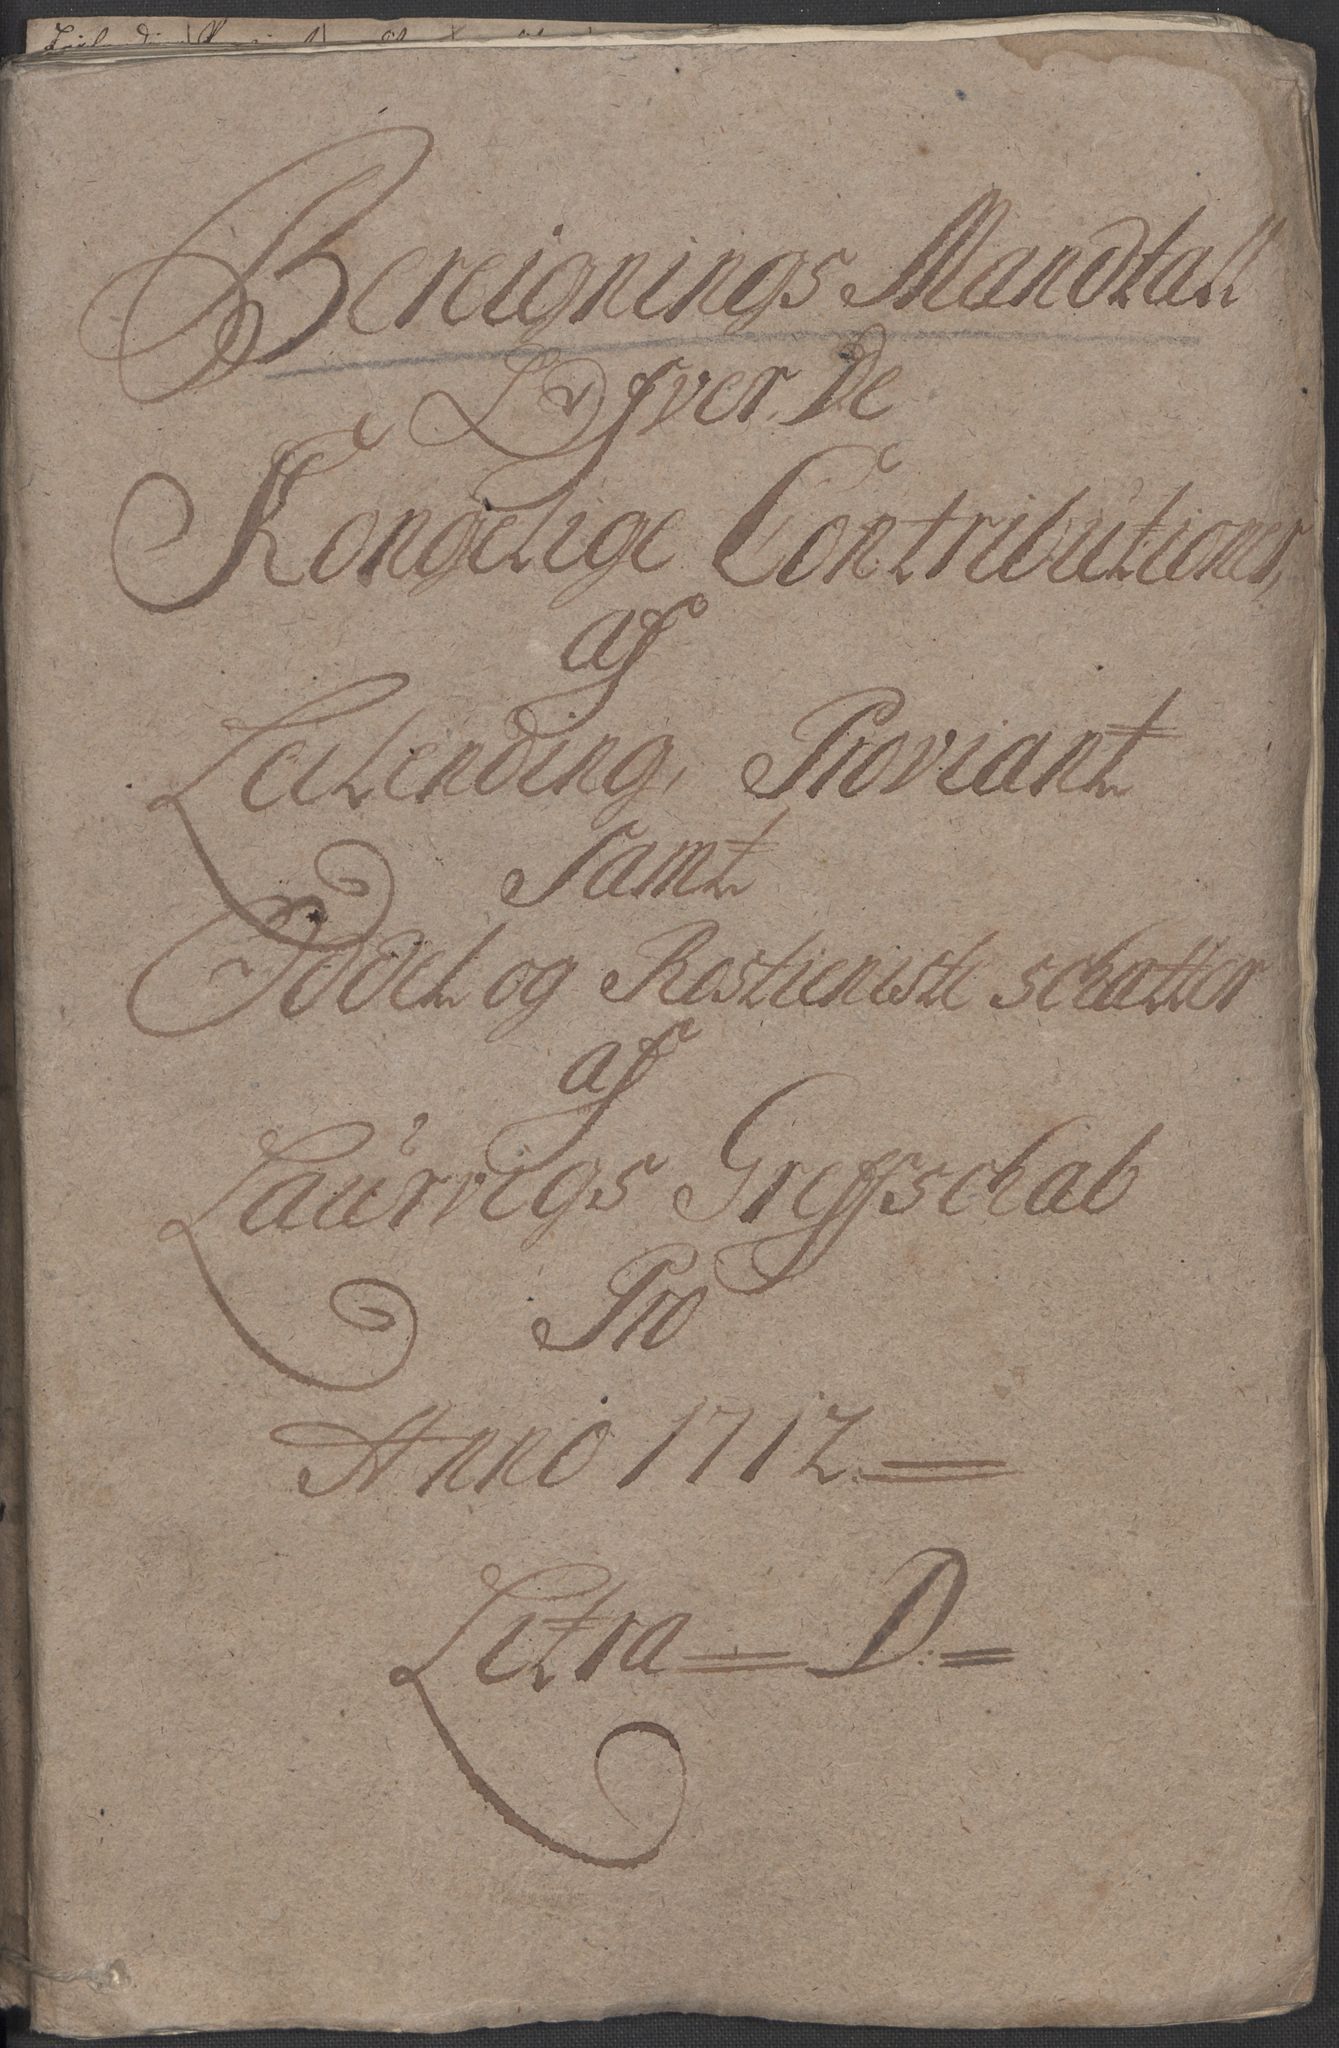 Bereignings Mandtall
Ofver De
Kongelige Contributioner,
af
Leilending, Proviant
samt
Oddel og Rostieniste schatter
af
Laürvigs Greffschab
Pro
Anno 1712
Litra D